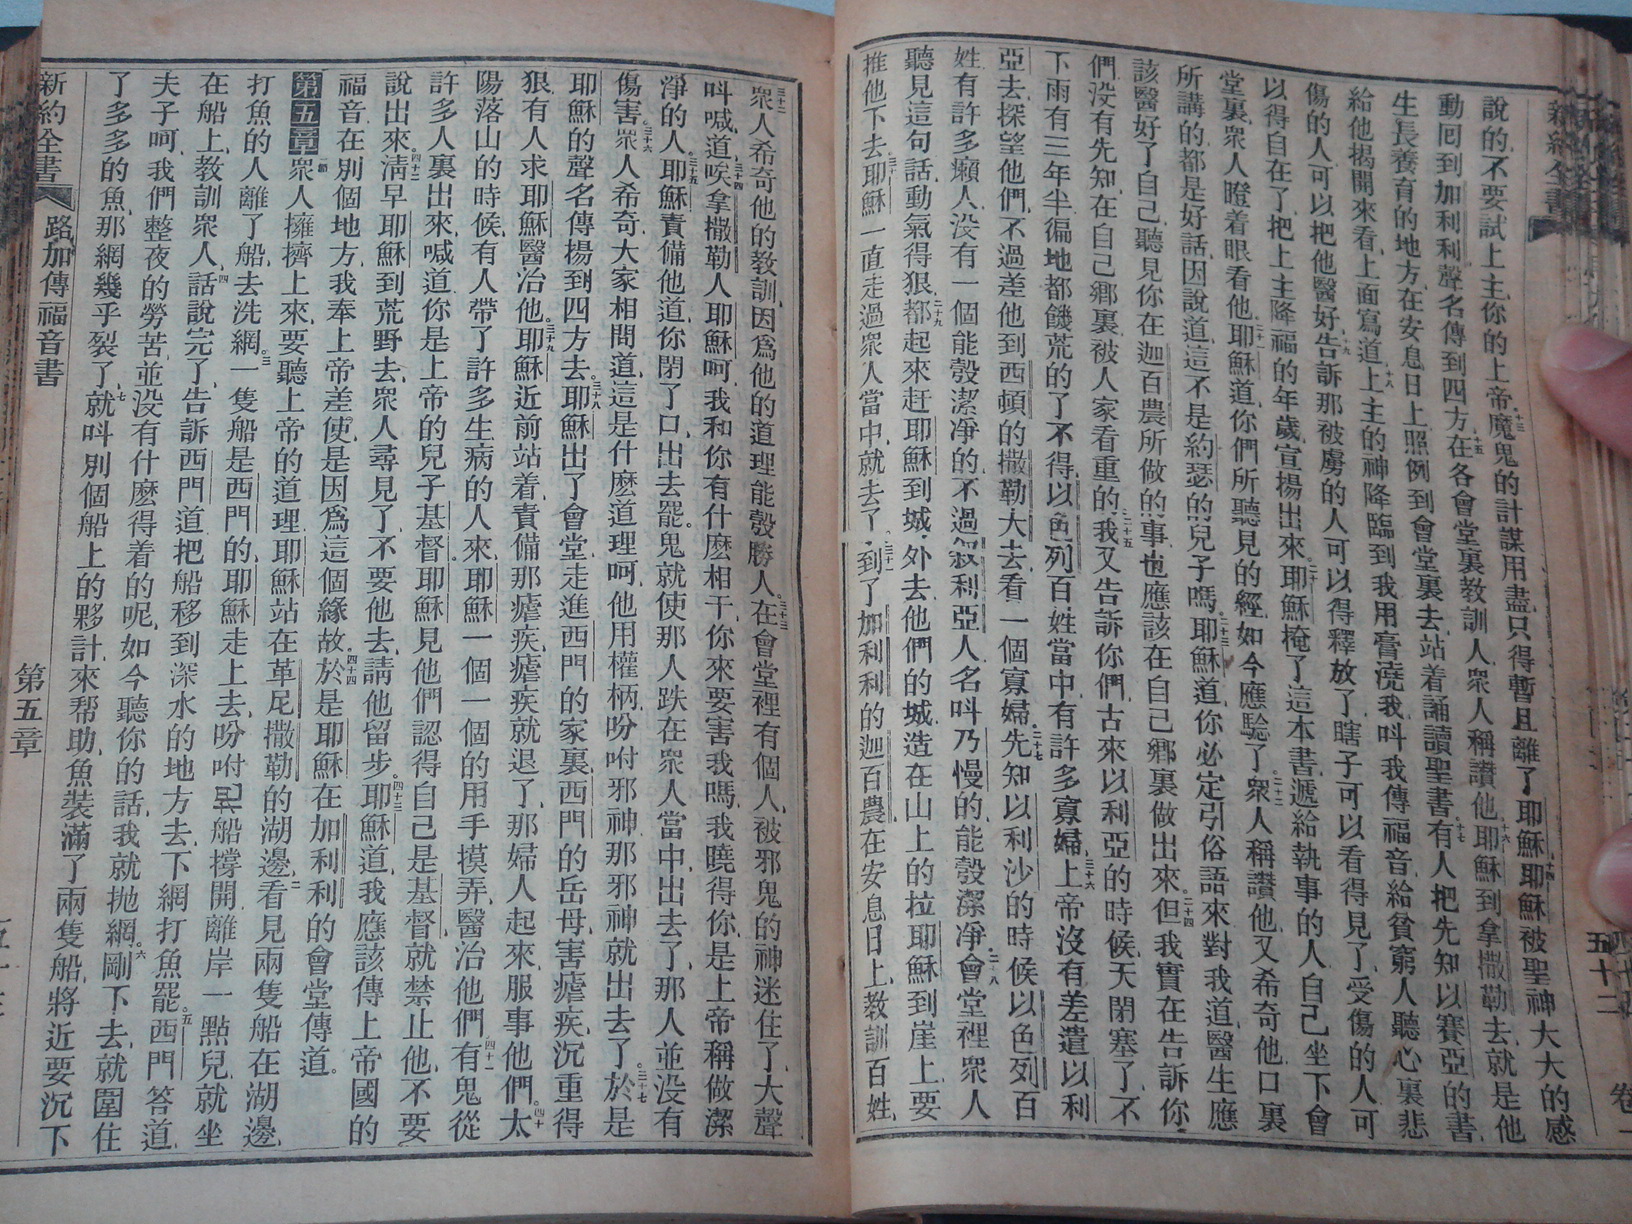 說的不要試上主你的上帝十三魔鬼的計謀用盡只得暫且離了耶穌十四耶穌被聖神大大的感
動回到加利利聲名傳到四方十五在各會堂裏教訓人衆人稱讚他十六耶穌到拿撒勒去就是他
生長養育的地方在安息日上照例到會堂裏去站着誦讀聖書十七有人把先知以賽亞的書
給他揭開來看上面寫道十八上主的神降臨到我用膏澆我呌我傳福音給貧窮人聽心裏悲
傷的人可以把他醫好十九告訴那被虜的人可以得釋放了瞎子可以看得見了受傷的人可
以得自在了把上主降福的年歲宣揚出來二十耶穌掩了這本書遞給執事的人自己坐下會
堂裏衆人瞪着眼看他二十一耶穌道你們所聽見的經如今應驗了二十二衆人稱讚他又希奇他口裏
所講的都是好話因說道這不是約瑟的兒子嗎二十三耶穌道你必定引俗語來對我道醫生應
該醫好了自己聽見你在迦百農所做的事也應該在自己鄉裏做出來二十四但我實在告訴你
們没有先知在自己鄉裏被人家看重的二十五我又告訴你們古來以利亞的時候天閉塞了不
下雨有三年半徧地都饑荒的了不得以色列百姓當中有許多寡婦二十六上帝没有差遣以利
亞去探望他們不過差他到西頓的撒勒大去看一個寡婦二十七先知以利沙的時候以色列百
姓有許多癩人没有一個能彀潔凈的不過叙利亞人名呌乃慢的能彀潔凈二十八會堂裡衆人
聽見這句話動氣得狠二十九都起來赶耶穌到城外去他們的城造在山上的拉耶穌到崖上要
推他下去三十耶穌一直走過衆人當中就去了三十一到了加利利的迦百農在安息日上教訓百姓
三十二衆人希奇他的教訓因爲他的道理能彀勝人三十三在會堂裡有個人被邪鬼的神迷住了大聲
呌喊道三十四唉拿撒勒人耶穌呵我和你有什麽相干你來要害我嗎我曉得你是上帝稱做潔
凈的人三十五耶穌責備他道你閉了口出去罷鬼就使那人跌在衆人當中出去了那人並没有
傷害三十六衆人希奇大家相問道這是什麽道理呵他用權柄吩咐邪神那邪神就出去了三十七於是
耶穌的聲名傳揚到四方去三十八耶穌出了會堂走進西門的家裏西門的岳母害瘧疾沉重得
狠有人求耶穌醫治他三十九耶穌近前站着責備那瘧疾瘧疾就退了那婦人起來服事他們四十太
陽落山的時候有人帶了許多生病的人來耶穌一個一個的用手摸弄醫治他們四十一有鬼從
許多人裏出來喊道你是上帝的兒子基督耶穌見他們認得自己是基督就禁止他不要
說出來四十二淸早耶穌到荒野去衆人尋見了不要他去請他留步四十三耶穌道我應該傳上帝國的
福音在別個地方我奉上帝差使是因爲這個緣故四十四於是耶穌在加利利的會堂傳道
第五章一節衆人擁擠上來要聽上帝的道理耶穌站在革尼撒勒的湖邊二看見兩隻船在湖邊
打魚的人離了船去洗網三一隻船是西門的耶穌走上去吩咐把船撐開離岸一點兒就坐
在船上教訓衆人四話說完了告訴西門道把船移到深水的地方去下網打魚罷五西門答道
夫子呵我們整夜的勞苦並没有什麽得着的呢如今聽你的話我就抛網六剛下去就圍住
了多多的魚那網幾乎裂了七就呌別個船上的夥計來帮助魚裝滿了兩隻船將近要沉下
新約全書 路加傳福音書 第五章